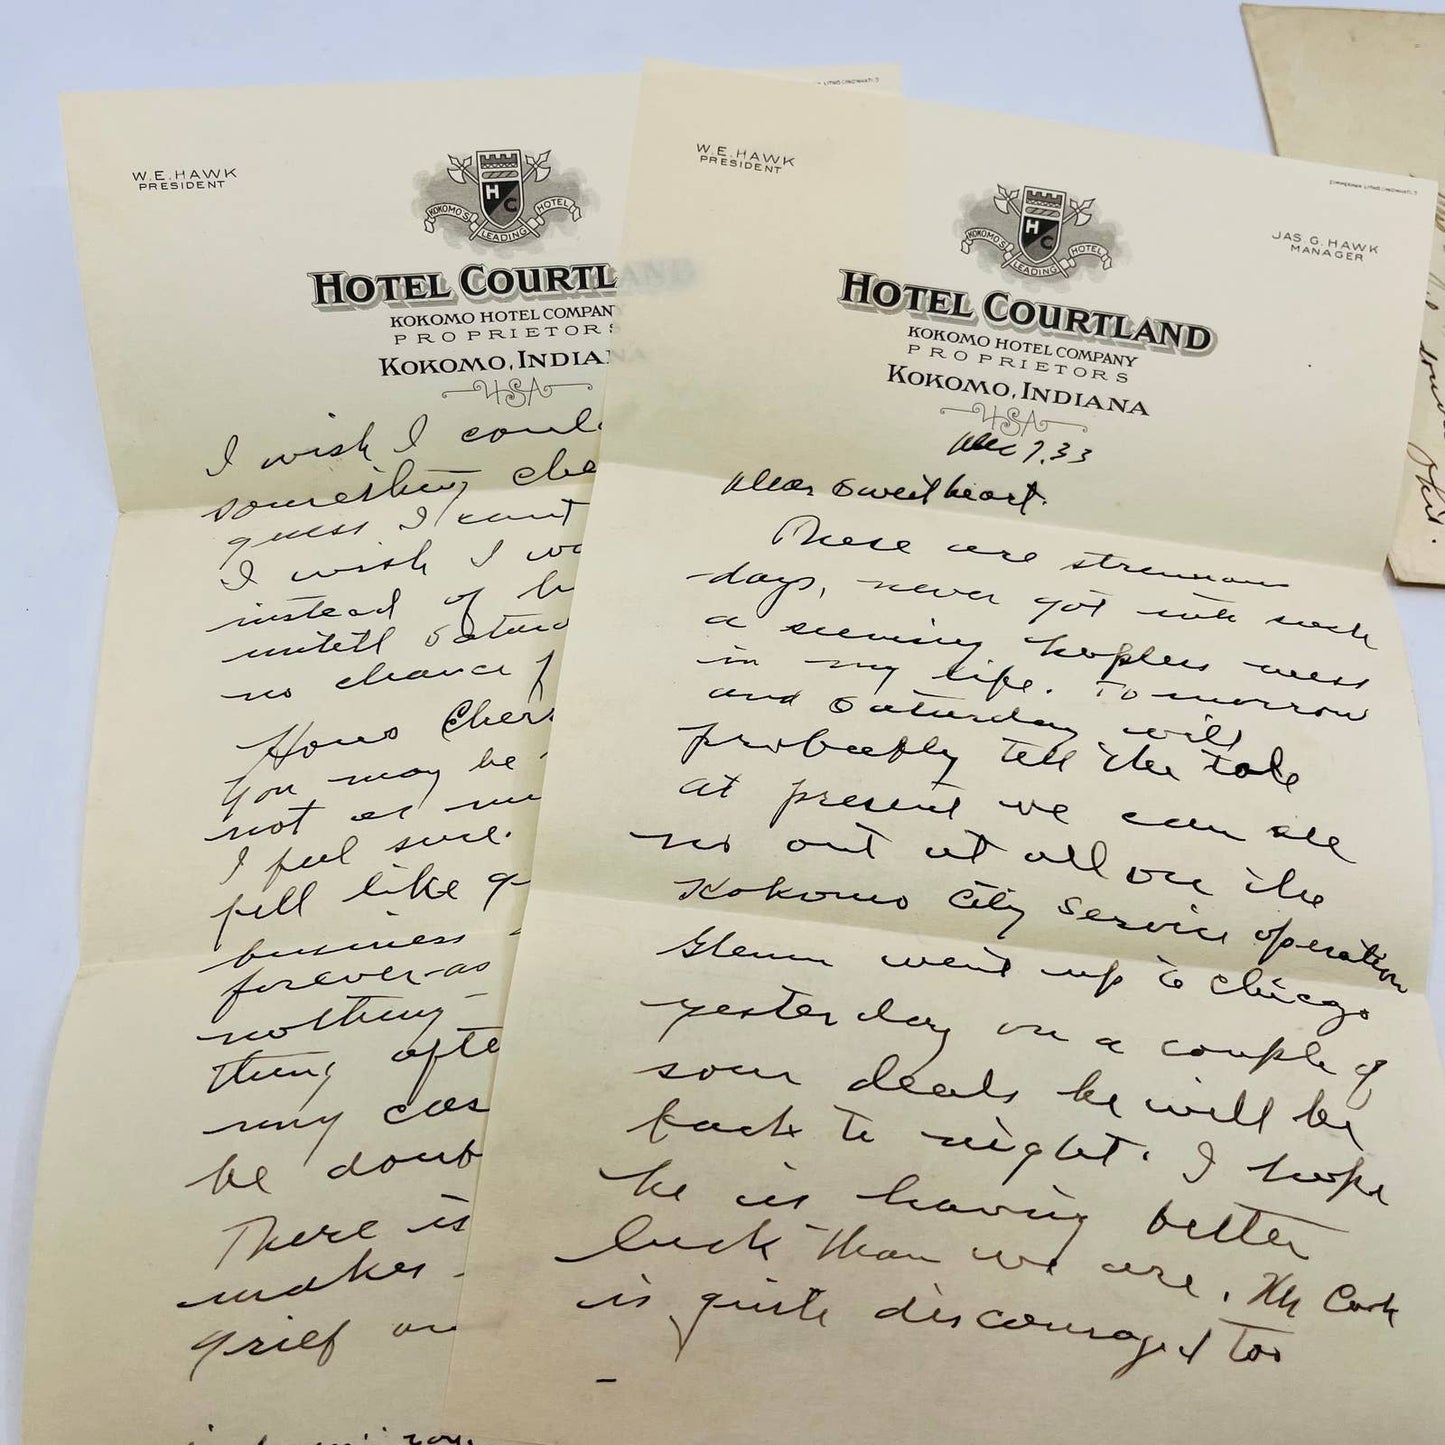 W.E. HAWK
PRESIDENT
H C
KOKOMO'S LEADING HOTEL
HOTEL COURTLAND
KOKOMO HOTEL COMPANY
PROPRIETORS
KOKOMO, INDIANA
USA
I wish I coul
something che
guess I cant
I wish I wo
instead of h
untill Saturd
no chance f
Hows Cher
You may be
not as mu
I feel sure.
fell like g
business
forever-as
nothing-
thing afte
my cas
be doub
There is
makes
grief an
you.
W.E. HAWK
PRESIDENT
JAS. G. HAWK
MANAGER
H C
KOKOMO'S LEADING HOTEL
HOTEL COURTLAND
KOKOMO HOTEL COMPANY
PROPRIETORS
KOKOMO, INDIANA
USA
Dec 7, 33
Dear Sweetheart.
These are strenuous
days, never got into such
a seeming hopless mess
in my life. Tomorrow
and Saturday will
probably tell the tale
at present we can see
no out at all on the
Kokomo City Service operation
Glenn went up to Chicago
yesterday on a couple of
sour deals he will be
back to night. I hope
he is having better
luck than we are. Mr Cork
is quite discouraged too